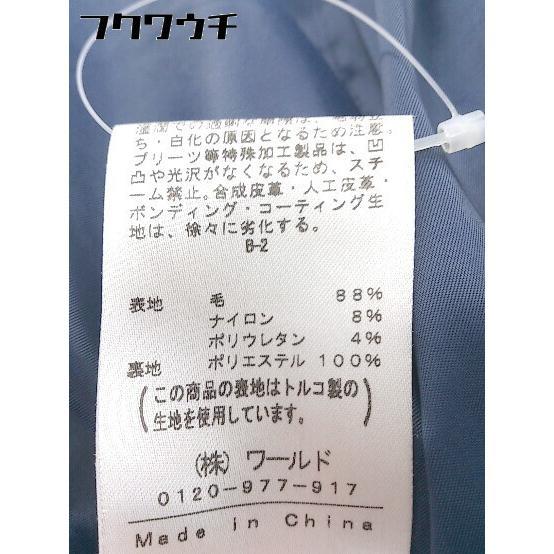 フクワウチ
ち・白化の原因となるため注意。
プリーツ等特殊加工製品は、凹
凸や光沢がなくなるため、スチ
ーム禁止。合成皮革・人工皮革・
ボンディング・コーティング生
地は、徐々に劣化する。
B-2
表地 毛 88%
ナイロン 8%
ポリウレタン 4%
裏地 ポリエステル 100%
(この商品の表地はトルコ製の
生地を使用しています。)
(株) ワールド
0120-977-917
Made in China